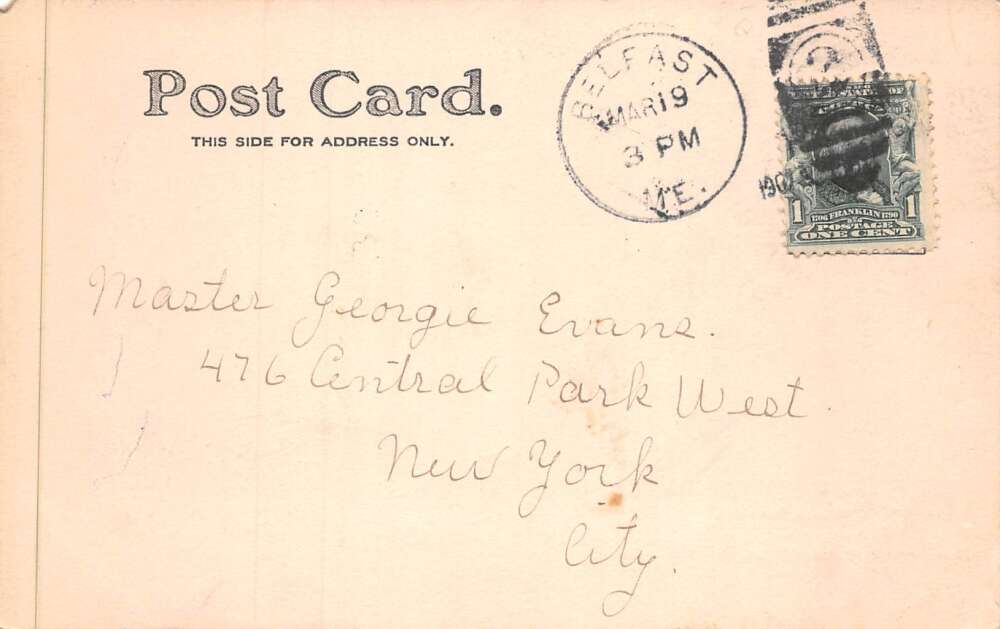 Post Card.
THIS SIDE FOR ADDRESS ONLY.
BELFAST
MAR 19
3 PM
ME.
2
1 1706 FRANKLIN 1790 1
POSTAGE
ONE CENT
Master Georgie Evans.
476 Central Park West.
New York
City.